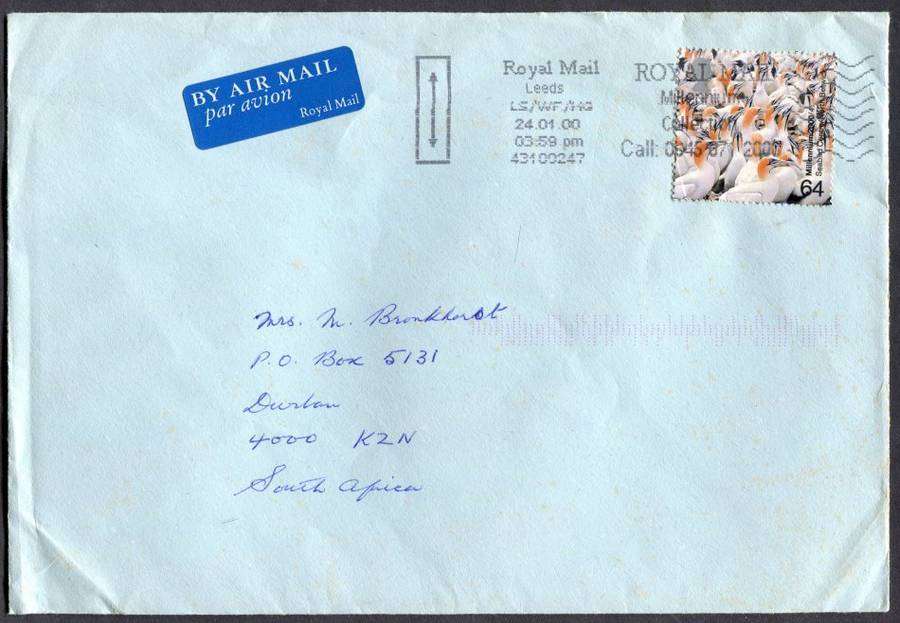 BY AIR MAIL
par avion
Royal Mail
Royal Mail
Leeds
LS/WF/HG
24.01.00
03:59 pm
43100247
ROYAL MAIL
Millennium
Call: 0845
2000
Millennium 2000
64
Mrs. M. Bronkhorst
P.O. Box 5131
Durban
4000 KZN
South Africa